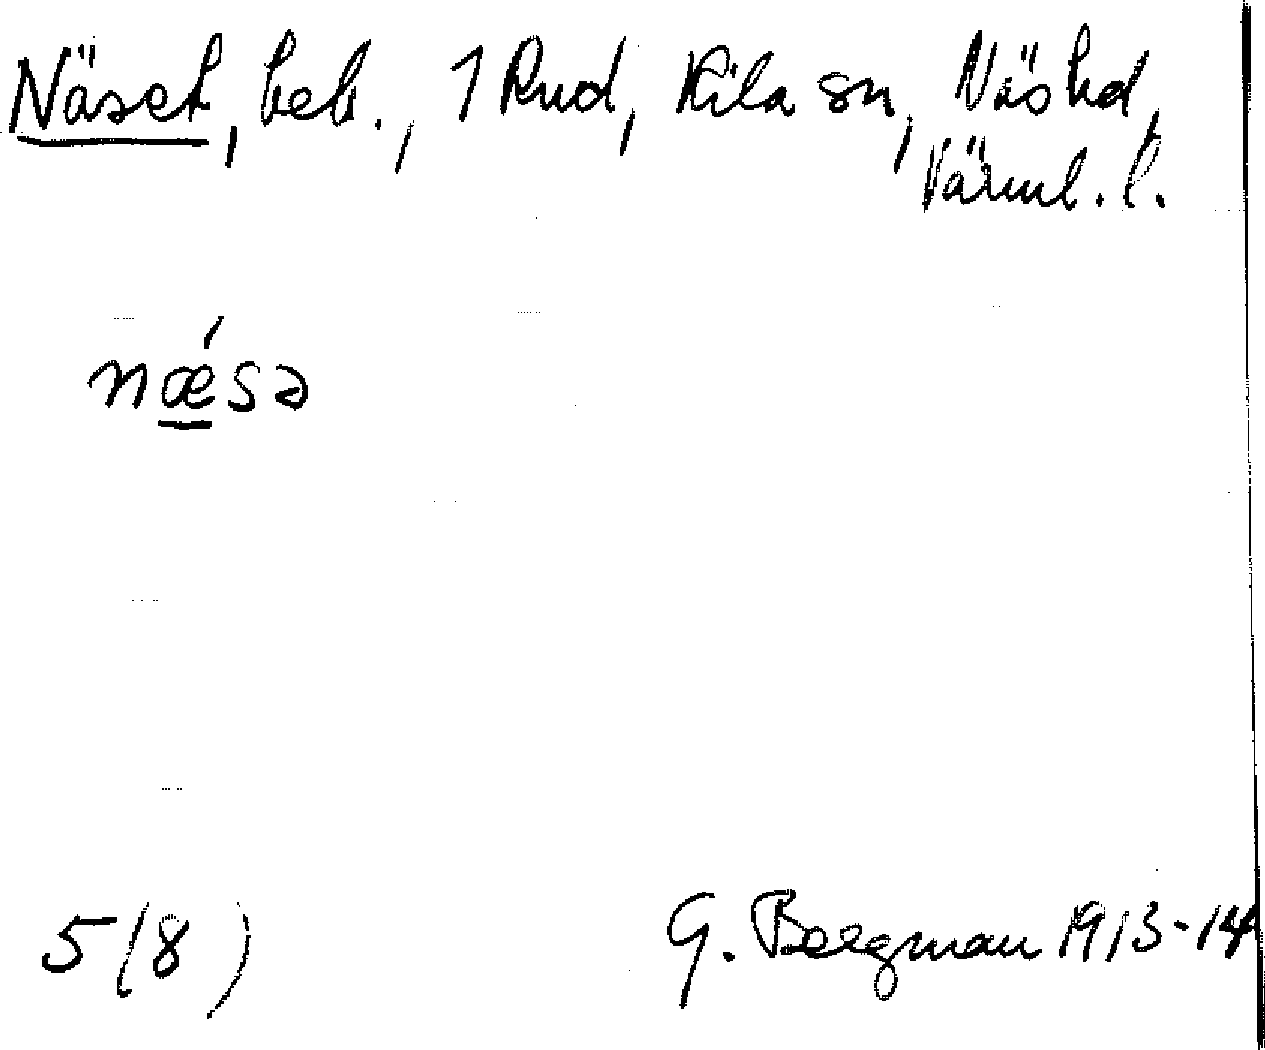 Näset, beb., 1 Rud, Kila sn, Näshd,
Värml. l.
nǽsə
5(8)
G. Bergman 1913-14